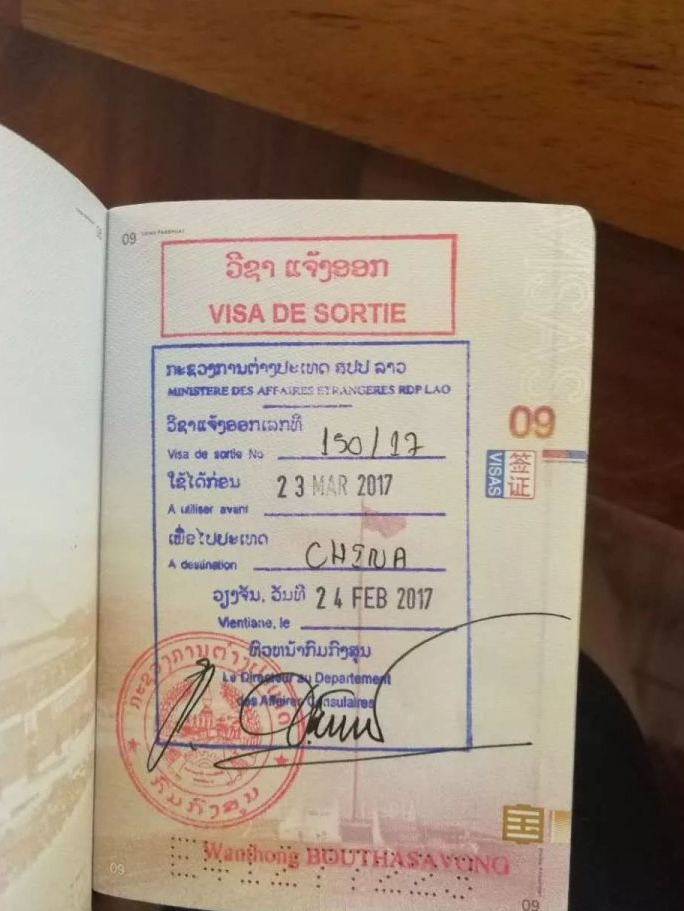 09
ວີຊາ ແຈ້ງອອກ
VISA DE SORTIE
ກະຊວງການຕ່າງປະເທດ ສປປ ລາວ
MINISTERE DES AFFAIRES ETRANGERES RDP LAO
ວີຊາແຈ້ງອອກເລກທີ
Visa de sortie No 150/17
ໃຊ້ໄດ້ກ່ອນ 23 MAR 2017
A utiliser avant
ເພື່ອໄປປະເທດ
A destination CHINA
ວຽງຈັນ, ວັນທີ 24 FEB 2017
Vientiane, le
ຫົວຫນ້າກົມກົງສຸນ
Le Directeur au Departement
des Affaires Consulaires
ກະຊວງການຕ່າງປະເທດ
ກົມກົງສຸນ
Wanthong BOUTHASAVONG
09
VISAS
签证
09
09